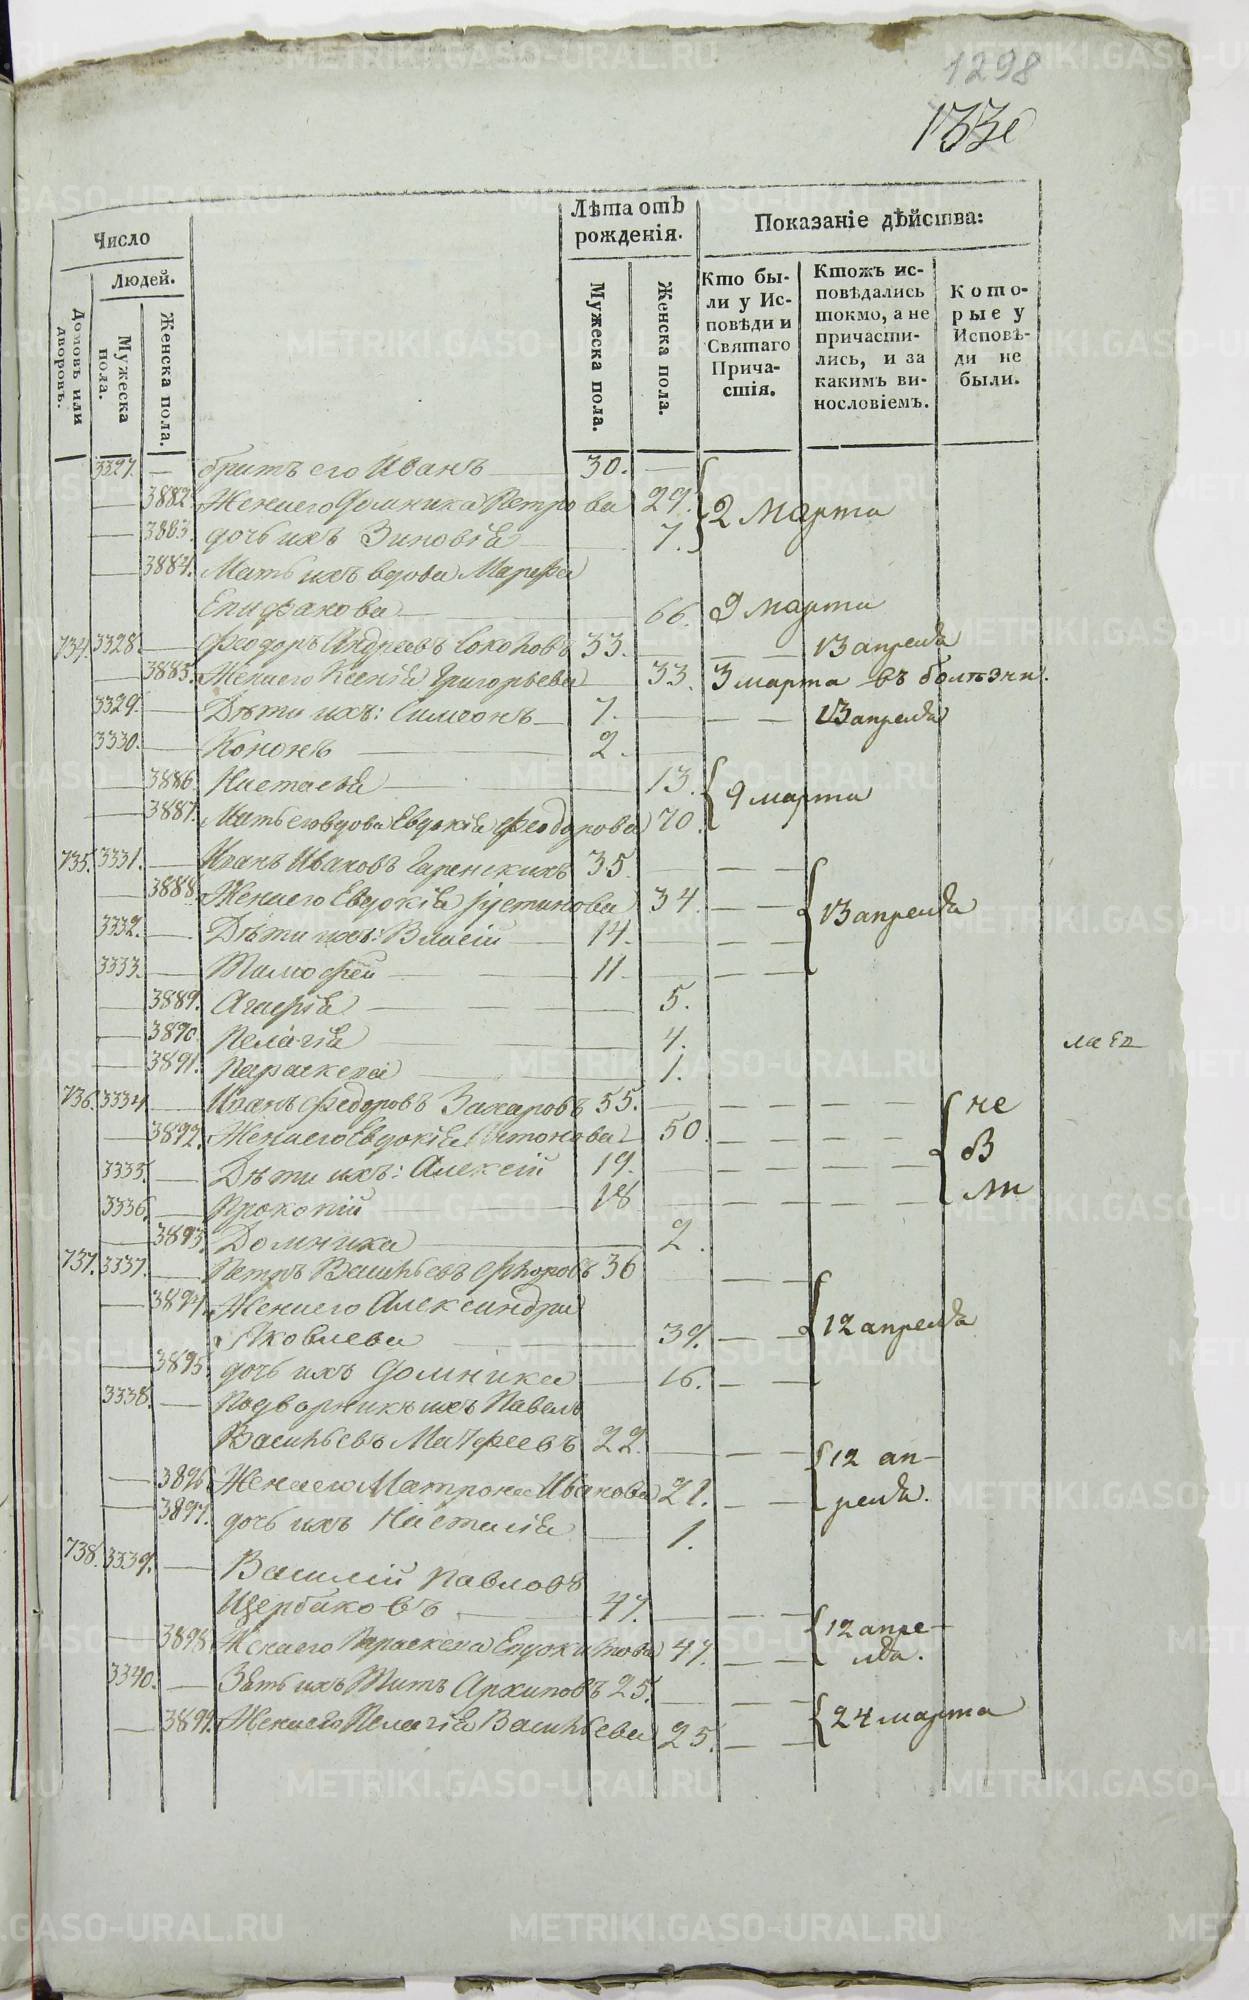 1298
1330
Число
Лѣта отъ рожденія.
Показаніе дѣйства:
Людей.
Домовъ или дворовъ.
Мужеска пола.
Женска пола.
Мужеска пола.
Женска пола.
Кто бы-
ли у Ис-
повѣди и
Святаго
Прича-
стія.
Ктожъ ис-
повѣдались
токмо, а не
причасти-
лись, и за
какимъ ви-
нословіемъ.
Кото-
рые у
Исповѣ-
ди не
были.
3327. — братъ его Иванъ — 30. —
— 3882 Жена его Домника Петрова 29. 2 Марта
— 3883. дочь ихъ Зиновія — 7.
— 3884. Мать ихъ вдова Марфа
Епифанова — 66. 9 марта
734. 3328. — Феодоръ Андреевъ Соколовъ 33. — — — 13 апреля
— 3885. Жена его Ксенія Григорьева 33. 3 марта въ болезни.
3329. — Дѣти ихъ: Симеонъ — 7. — — — 13 апреля
3330. — Кононъ — 2. —
— 3886. Настасья — 13. 9 марта
— 3887. Мать его вдова Евдокія Феодорова 70.
735. 3331. — Иванъ Ивановъ 35. — — —
— 3888. Жена его Евдокія Іустинова 34. — — 13 апреля
3332. — Дѣти ихъ: Власій — 14. — — —
3333. — Тимофей — 11. — — —
— 3889. Агафія — 5.
— 3890. Пелагія — 4.
— 3891. Параскева — 1.
736. 3334. — Иванъ Федоровъ Захаровъ 55. — — — — — не
— 3892. Жена его Евдокія Антонова 50. — — — — в
3335. — Дѣти ихъ: Алексій 19. — — — — —
3336. — Прокопій — 18 — — — — — ли
— 3893. Домника — 2.
737. 3337. — Петръ Васильевъ Флоровъ 36 — —
— 3894. Жена его Александра
Яковлева — 39. — — 12 апреля
— 3895. дочь ихъ Домника — 16. — —
3338. — Подворникъ ихъ Павелъ
Васильевъ Матфеевъ 22. — — — 12 ап-
— 3896. Жена его Матрона Иванова 21. — — реля.
— 3897. дочь ихъ Наталія — 1.
738. 3339. — Василій Павловъ
Щербаковъ — 47. — — —
— 3898. Жена его Параскева Евдокимова 47. — — 12 апре-
ля.
3340. — Зять ихъ Титъ Архиповъ 25. — — —
— 3899. Жена его Пелагія Васильева 25. — — 24 марта